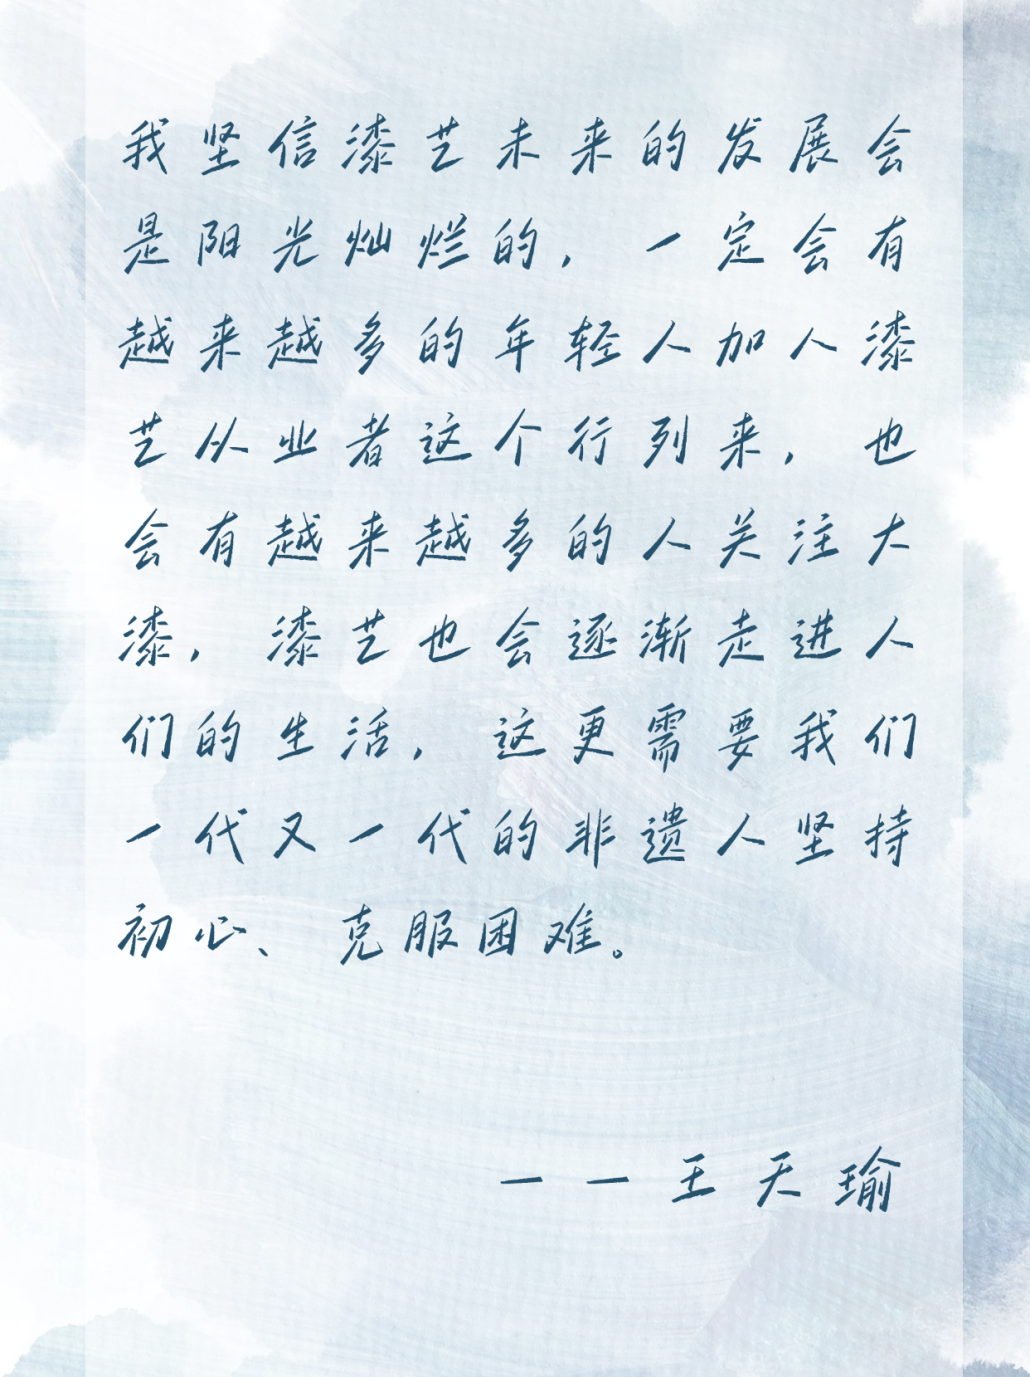 我坚信漆艺未来的发展会
是阳光灿烂的，一定会有
越来越多的年轻人加人漆
艺从业者这个行列来，也
会有越来越多的人关注大
漆，漆艺也会逐渐走进人
们的生活，这更需要我们
一代又一代的非遗人坚持
初心、克服困难。
——王天瑜